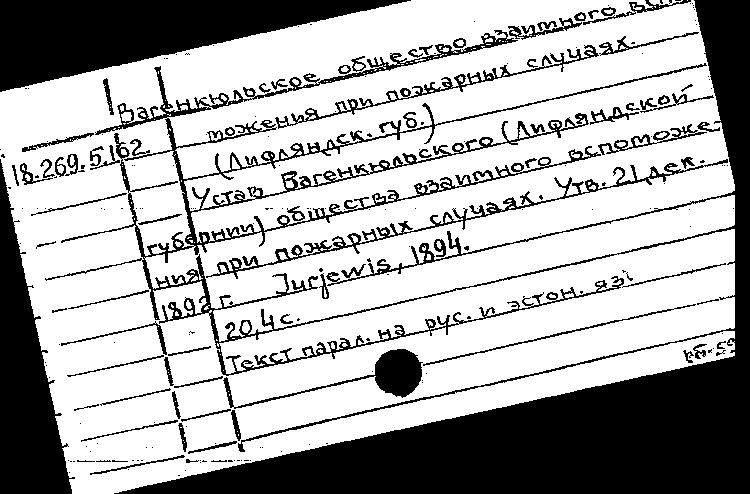 Вагенкюльское общество взаимного вспо
можения при пожарных случаях.
(Лифляндск. губ.)
18.269.5.162.
Устав Вагенкюльского (Лифляндской
губернии) общества взаимного вспоможе-
ния при пожарных случаях. Утв. 21 дек.
1892 г. Jurjewis, 1894.
20,4 с.
Текст парал. на рус. и эстон. яз